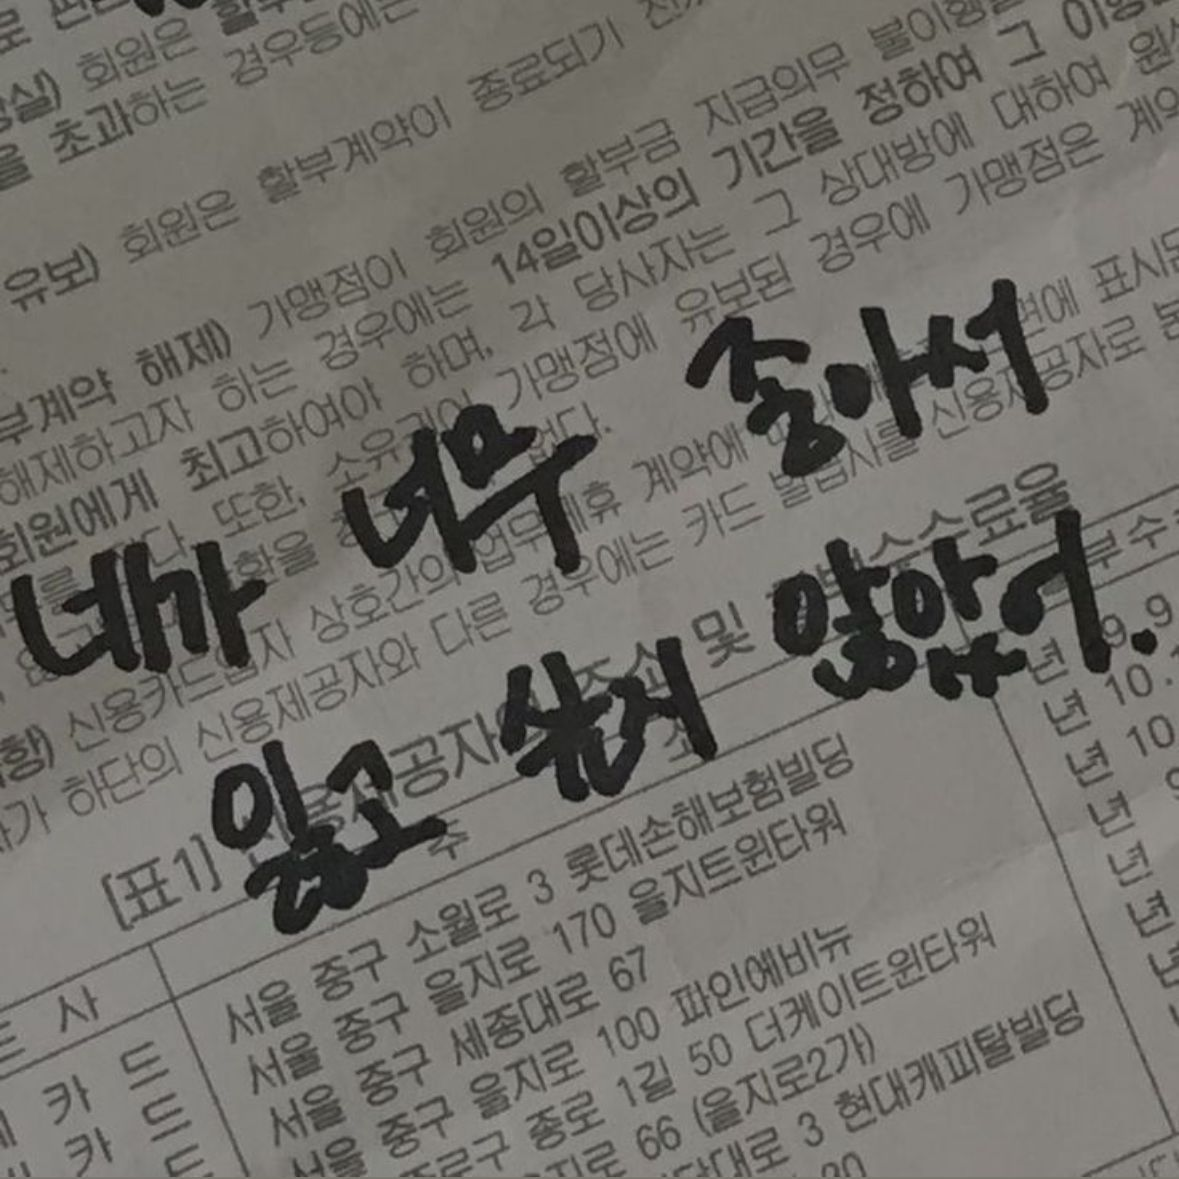 회원은 할부
실) 회원은
을 초과하는 경우등에는
유보) 회원은 할부계약이 종료되기 전
부계약 해제) 가맹점이 회원의 할부금 지급의무 불이행을
해제하고자 하는 경우에는 14일이상의 기간을 정하여 그 이행
회원에게 최고하여야 하며, 각 당사자는 그 상대방에 대하여 원상
또한, 소유권이 가맹점에 유보된 경우에 가맹점은 계약
없다.
네가 너무 좋아서
잃고 싶지 않았어.
상호간의 업무제휴 계약에 면에 표시된
신용카드업자와 다른 경우에는 카드 발급사를 신용제공자로 본
가 하단의 신용제공자
[표1] 신용제공자의 주소 및 수수료율
사 주 소 부 수
카드 서울 중구 소월로 3 롯데손해보험빌딩 년 9.9
카드 서울 중구 을지로 170 을지트윈타워 년 10.
서울 중구 세종대로 67 년 10
서울 중구 을지로 100 파인에비뉴 년
종로구 종로 1길 50 더케이트윈타워 년
66 (을지로2가) 년
대로 3 현대캐피탈빌딩